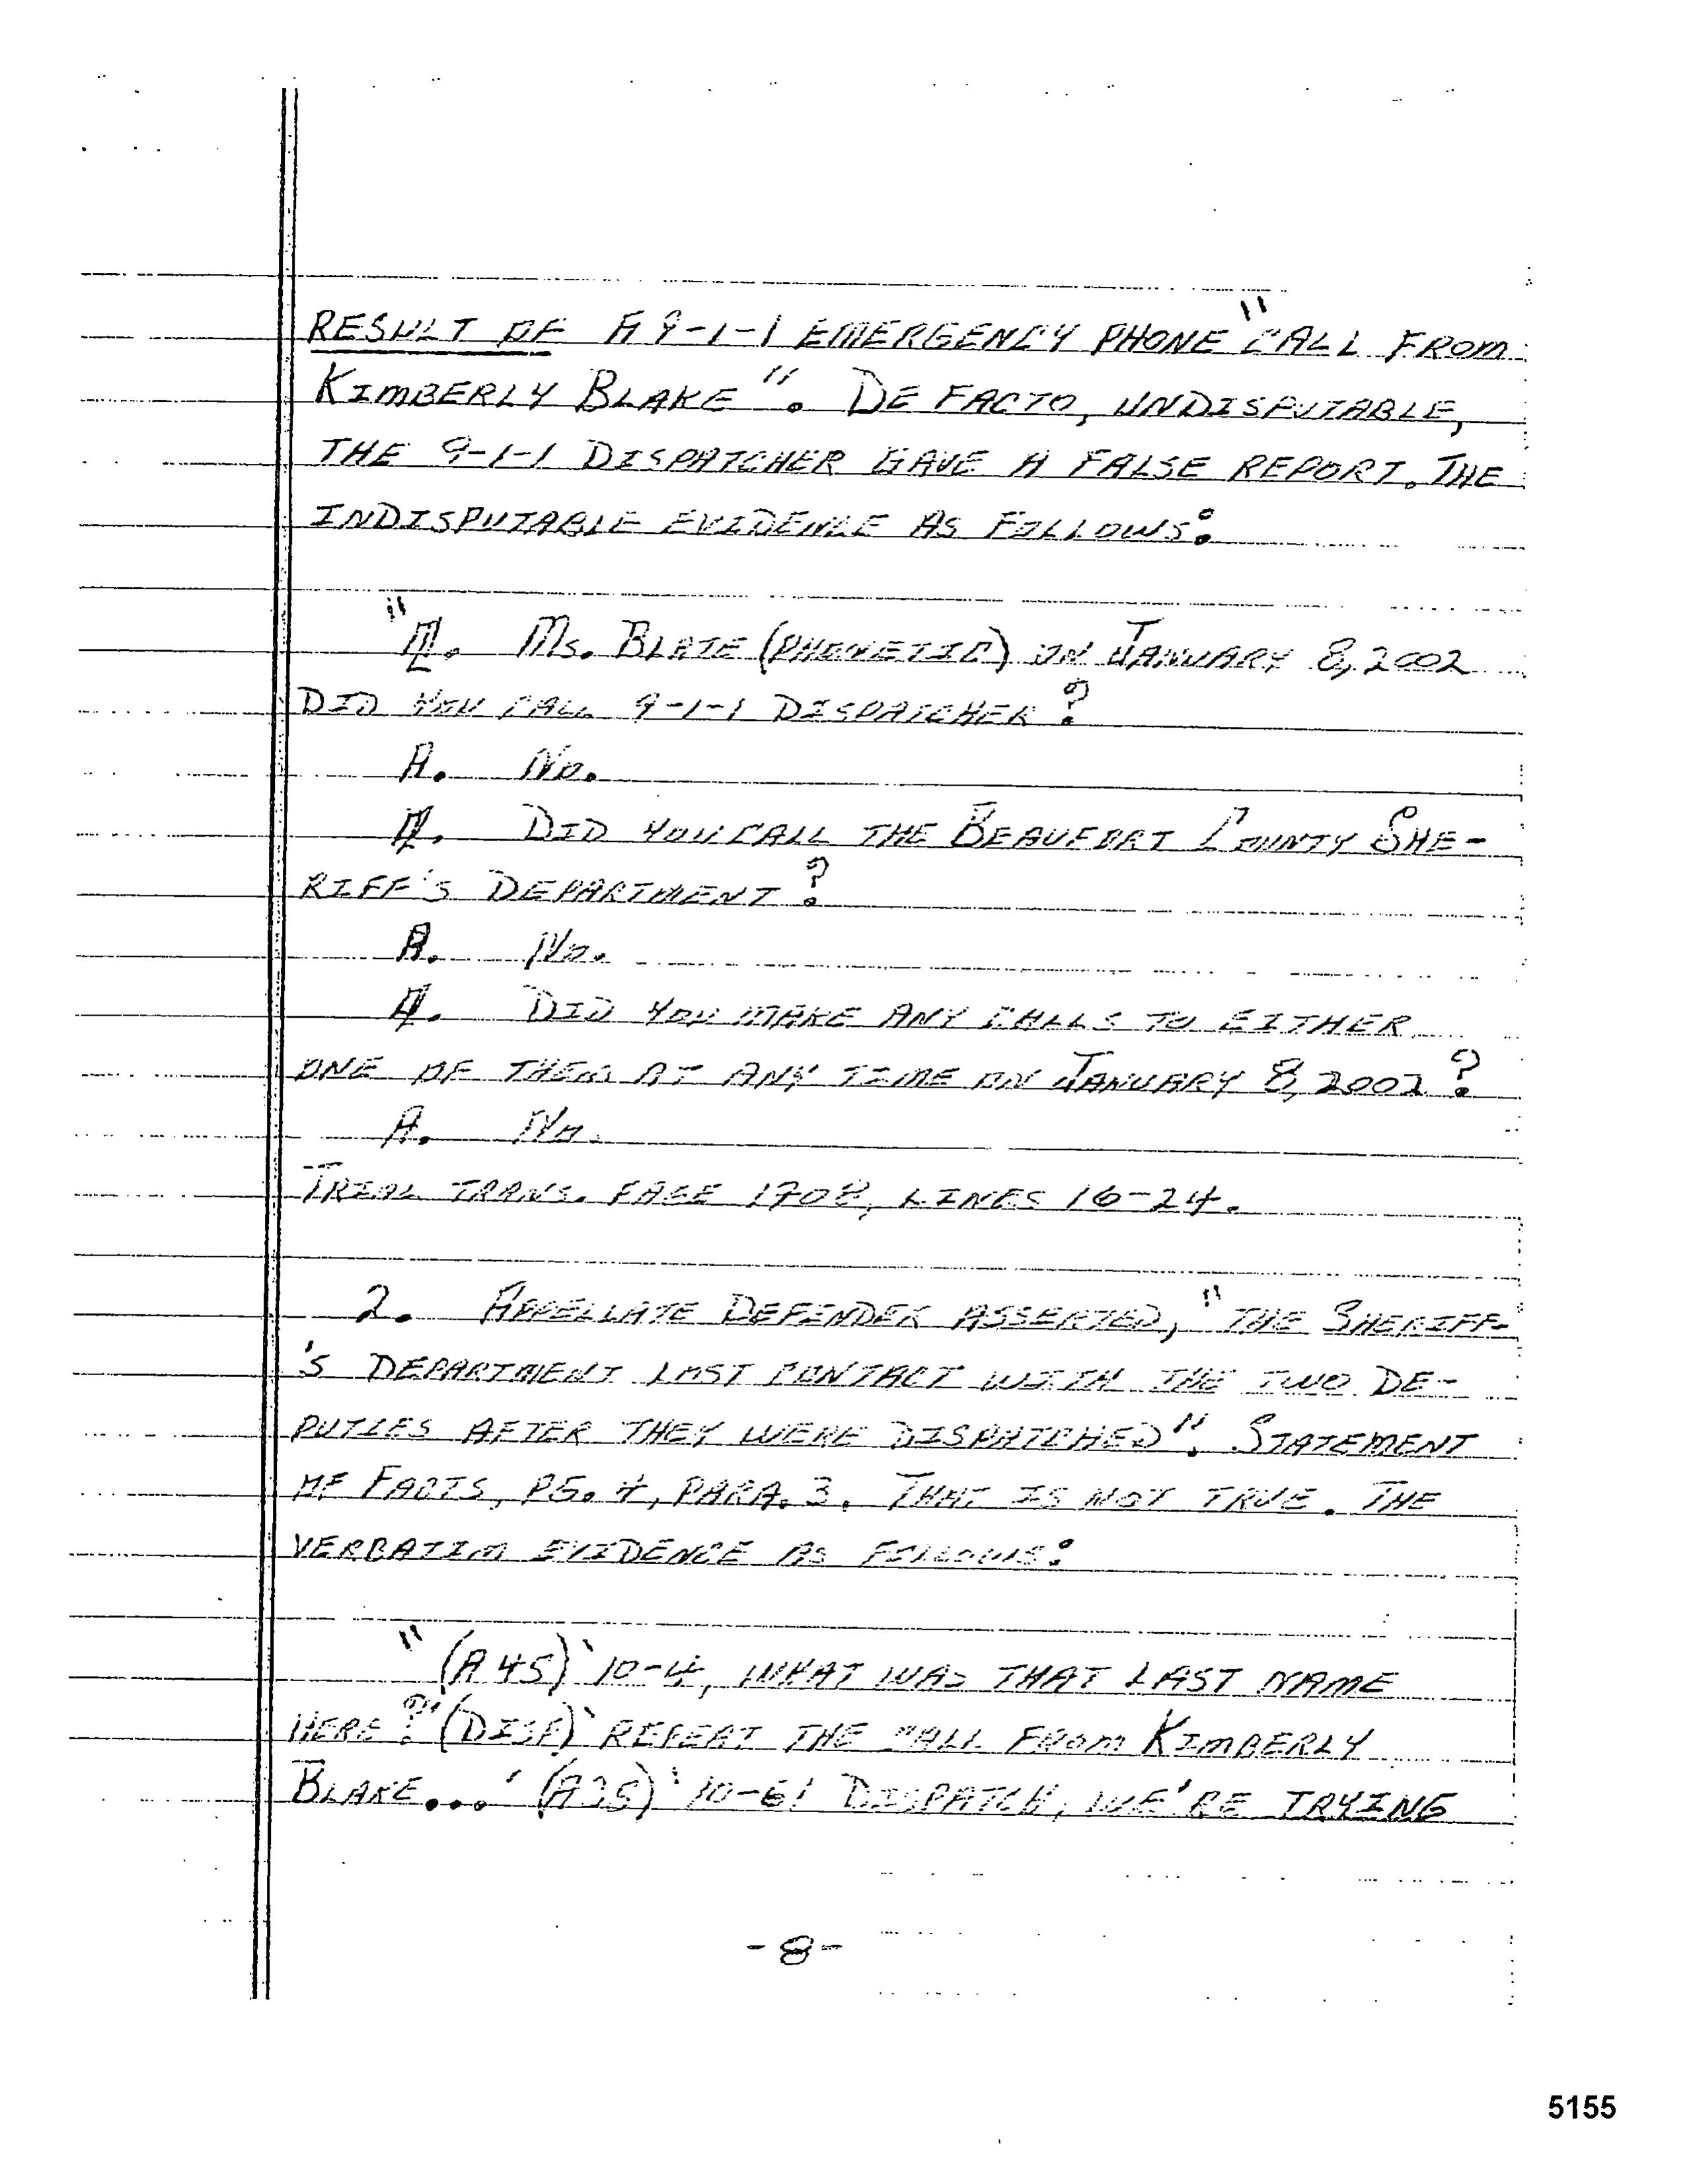 RESULT OF A 9-1-1 EMERGENCY PHONE "CALL FROM
KIMBERLY BLAKE". DE FACTO, UNDISPUTABLE,
THE 9-1-1 DISPATCHER GAVE A FALSE REPORT. THE
INDISPUTABLE EVIDENCE AS FOLLOWS:
"Q. MS. BLATE (PHONETIC) ON JANUARY 8, 2002
DID YOU CALL 9-1-1 DISPATCHER?
A. NO.
Q. DID YOU CALL THE BEAUFORT COUNTY SHE-
RIFF'S DEPARTMENT?
A. NO.
Q. DID YOU MAKE ANY CALLS TO EITHER
ONE OF THEM AT ANY TIME ON JANUARY 8, 2002?
A. NO.
TRIAL TRANS. PAGE 1708, LINES 16-24.
2. APPELLATE DEFENDER ASSERTED, "THE SHERIFF-
'S DEPARTMENT LOST CONTACT WITH THE TWO DE-
PUTIES AFTER THEY WERE DISPATCHED". STATEMENT
OF FACTS, PG. 4, PARA. 3. THAT IS NOT TRUE. THE
VERBATIM EVIDENCE AS FOLLOWS:
"(A45) '10-4, WHAT WAS THAT LAST NAME
HERE?' (DISP) 'REPEAT THE CALL FROM KIMBERLY
BLAKE...' (A35) '10-61 DISPATCH, WE'RE TRYING
-8-
5155